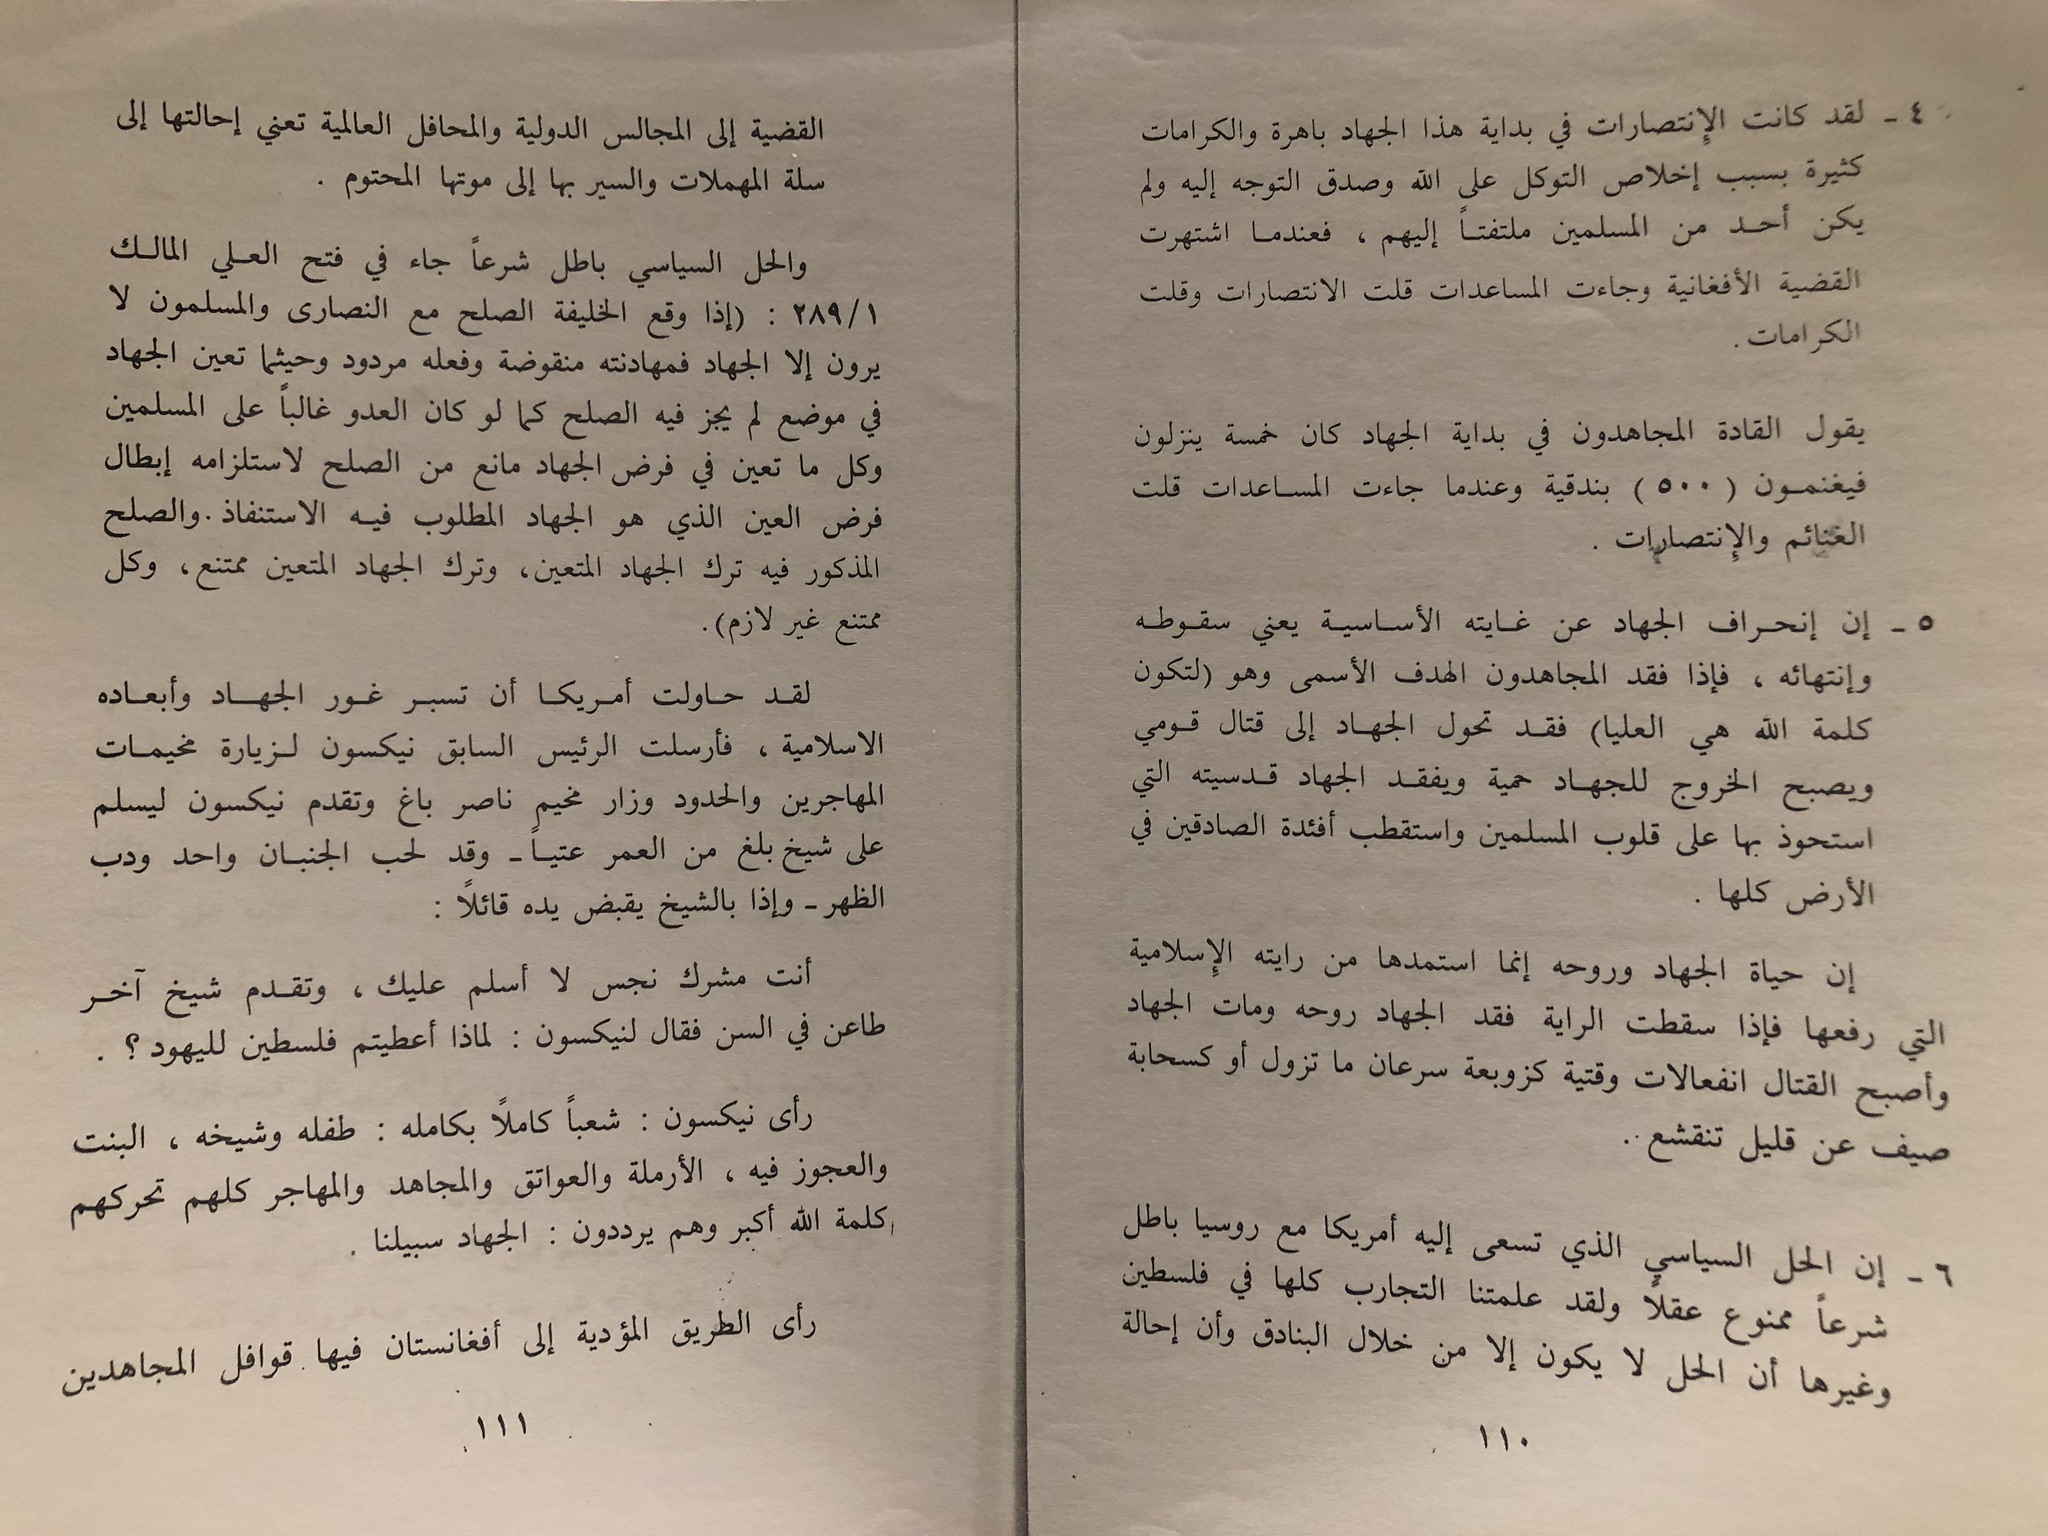 ٤ ـ لقد كانت الإنتصارات في بداية هذا الجهاد باهرة والكرامات
كثيرة بسبب إخلاص التوكل على الله وصدق التوجه إليه ولم
يكن أحد من المسلمين ملتفتاً إليهم ، فعندما اشتهرت
القضية الأفغانية وجاءت المساعدات قلت الانتصارات وقلت
الكرامات .
يقول القادة المجاهدون في بداية الجهاد كان خمسة ينزلون
فيغنمون ( ٥٠٠ ) بندقية وعندما جاءت المساعدات قلت
الغنائم والإنتصارات .
٥ ـ إن إنحراف الجهاد عن غايته الأساسية يعني سقوطه
وإنتهائه ، فإذا فقد المجاهدون الهدف الأسمى وهو (لتكون
كلمة الله هي العليا) فقد تحول الجهاد إلى قتال قومي
ويصبح الخروج للجهاد حمية ويفقد الجهاد قدسيته التي
استحوذ بها على قلوب المسلمين واستقطب أفئدة الصادقين في
الأرض كلها .
إن حياة الجهاد وروحه إنما استمدها من رايته الإسلامية
التي رفعها فإذا سقطت الراية فقد الجهاد روحه ومات الجهاد
وأصبح القتال انفعالات وقتية كزوبعة سرعان ما تزول أو كسحابة
صيف عن قليل تنقشع .
٦ ـ إن الحل السياسي الذي تسعى إليه أمريكا مع روسيا باطل
شرعاً ممنوع عقلاً ولقد علمتنا التجارب كلها في فلسطين
وغيرها أن الحل لا يكون إلا من خلال البنادق وأن إحالة
١١٠
القضية إلى المجالس الدولية والمحافل العالمية تعني إحالتها إلى
سلة المهملات والسير بها إلى موتها المحتوم .
والحل السياسي باطل شرعاً جاء في فتح العلي المالك
٢٨٩/١ : (إذا وقع الخليفة الصلح مع النصارى والمسلمون لا
يرون إلا الجهاد فمهادنته منقوضة وفعله مردود وحيثما تعين الجهاد
في موضع لم يجز فيه الصلح كما لو كان العدو غالباً على المسلمين
وكل ما تعين في فرض الجهاد مانع من الصلح لاستلزامه إبطال
فرض العين الذي هو الجهاد المطلوب فيه الاستنفاذ . والصلح
المذكور فيه ترك الجهاد المتعين، وترك الجهاد المتعين ممتنع، وكل
ممتنع غير لازم).
لقد حاولت أمريكا أن تسبر غور الجهاد وأبعاده
الاسلامية ، فأرسلت الرئيس السابق نيكسون لزيارة مخيمات
المهاجرين والحدود وزار مخيم ناصر باغ وتقدم نيكسون ليسلم
على شيخ بلغ من العمر عتياً ـ وقد لحب الجنبان واحد ودب
الظهر ـ وإذا بالشيخ يقبض يده قائلاً :
أنت مشرك نجس لا أسلم عليك ، وتقدم شيخ آخر
طاعن في السن فقال لنيكسون : لماذا أعطيتم فلسطين لليهود ؟ .
رأى نيكسون : شعباً كاملاً بكامله : طفله وشيخه ، البنت
والعجوز فيه ، الأرملة والعواتق والمجاهد والمهاجر كلهم تحركهم
كلمة الله أكبر وهم يرددون : الجهاد سبيلنا .
رأى الطريق المؤدية إلى أفغانستان فيها قوافل المجاهدين
١١١